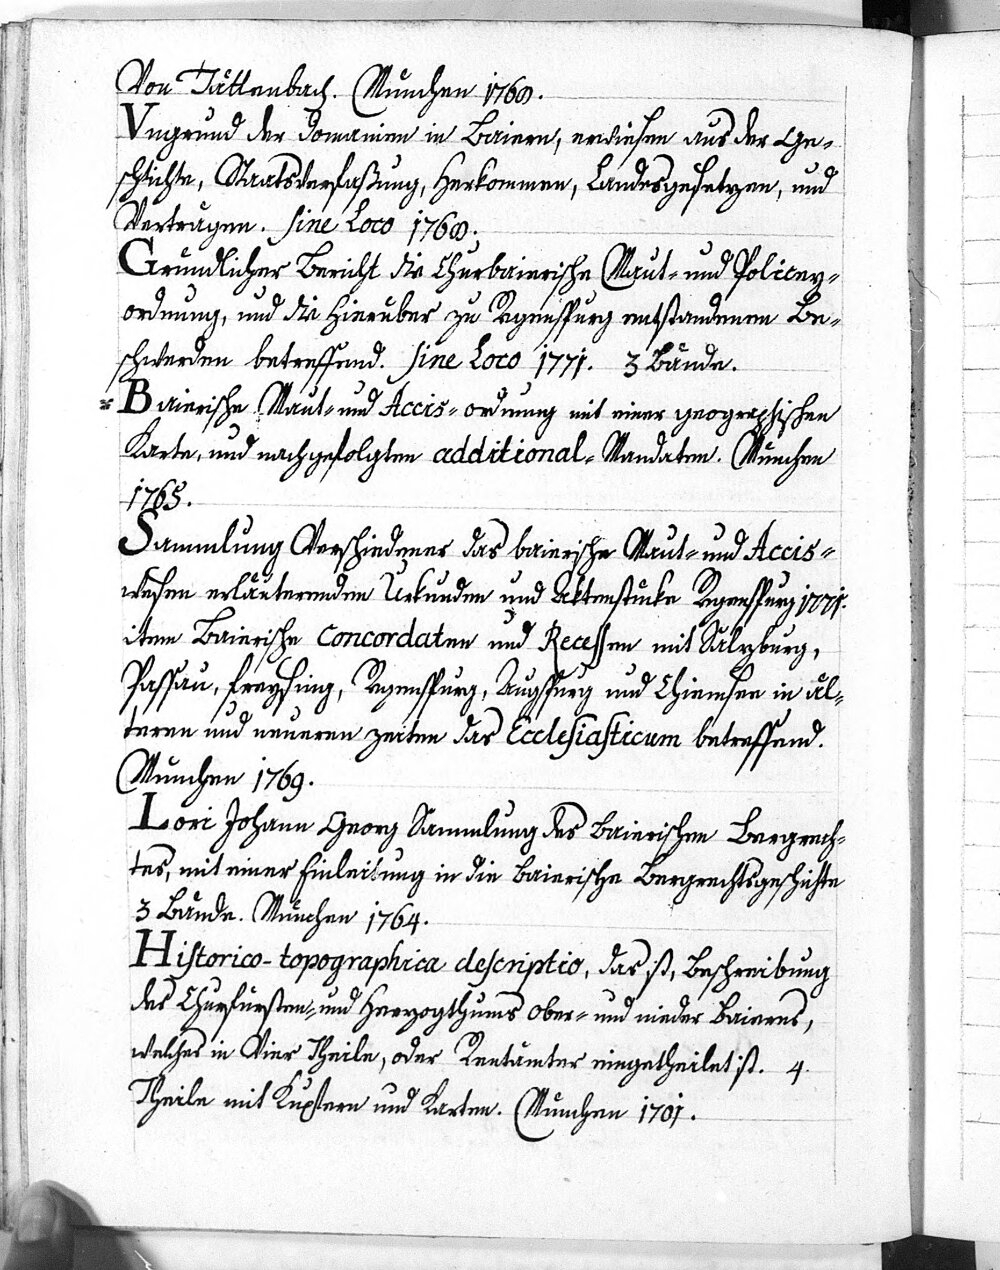 Von Tättenbach. München 1768.
Vngrund der Domanien in Baiern, erwiesen aus der Ge-
schichte, Staatsverfaßung, Herkommen, Landesgesetzen, und
Verträgen. sine Loco 1768.
Gründlicher Bericht die Churbaierische Maut- und Policey-
ordnung, und die hierüber zu Regenspurg entstandenen Be-
schwerden betreffend. sine Loco 1771. 3 Bände.
Baierische Maut- und Accis-ordnung mit einer geographischen
Karte, und nachgefolgten additional-Mandaten. München
1765.
Sammlung Verschiedener das baierische Maut- und Accis-
wesen erläuterenden Urkunden und Aktenstücke Regenspurg 1771.
item Baierische Concordaten und Recessen mit Salzburg,
Passau, Freysing, Regenspurg, Augspurg und Chiemsee in äl-
teren und neueren zeiten das Ecclesiasticum betreffend.
München 1769.
Lori Johann Georg Sammlung des baierischen Bergrech-
tes, mit einer Einleitung in die baierische Bergrechtsgeschichte
3 Bände. München 1764.
Historico-topographica descriptio, das ist, Beschreibung
des Churfürsten- und Herzogthums ober- und nieder Baierns,
welches in Vier Theile, oder Rentämter eingetheilet ist. 4.
Theile mit Kupfern und Karten. München 1701.